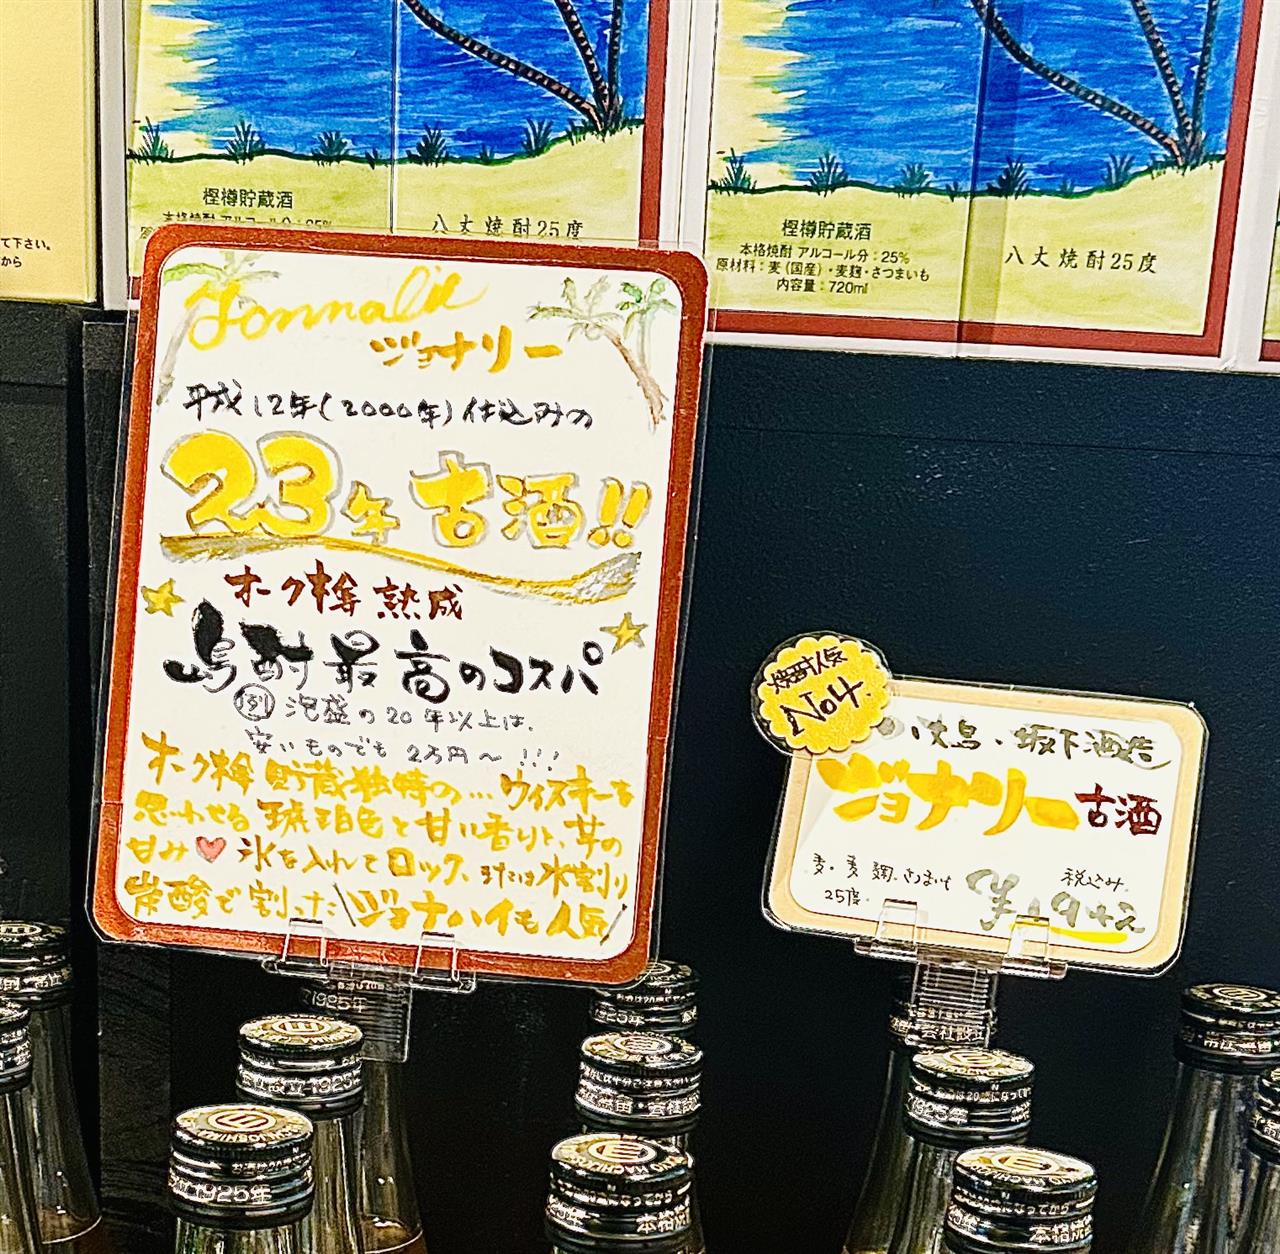 樫樽貯蔵酒
八丈焼酎25度
樫樽貯蔵酒
本格焼酎 アルコール分：25%
原材料：麦(国産)・麦麹・さつまいも
内容量：720ml
八丈焼酎25度
て下さい。
から
ジョナリー
平成12年(2000年)仕込みの
23年古酒!!
オーク樽熟成
島酎最高のコスパ
例 泡盛の20年以上は、
安いものでも 2万円〜!!!
オーク樽貯蔵独特の…ウィスキーを
思わせる琥珀色と甘い香りと、芋の
甘み♥氷を入れてロック、または水割り
炭酸で割った\ジョナハイも人気/
焼酎人気
No4.
坂下酒造
ジョナリー古酒
麦・麦麹、さつまいも
25度
税込み
会社設立1925年
1925年
1925年
1925年
本格焼